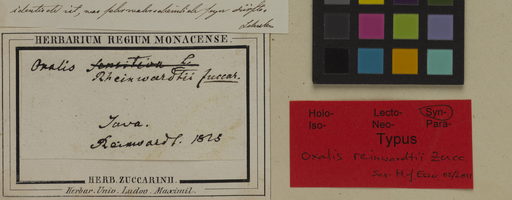 identisch ist, was sehr wahrscheinlich
HERBARIUM REGIUM MONACENSE.
Oxalis sensitiva L.
Rheinwardtii Zuccar.
Java.
Reinwardt. 1825
HERB. ZUCCARINII.
Herbar. Univ. Ludov. Maximil.
Holo- Lecto- Syn-
Iso- Neo- Para-
Typus
Oxalis reinwardtii Zucc.